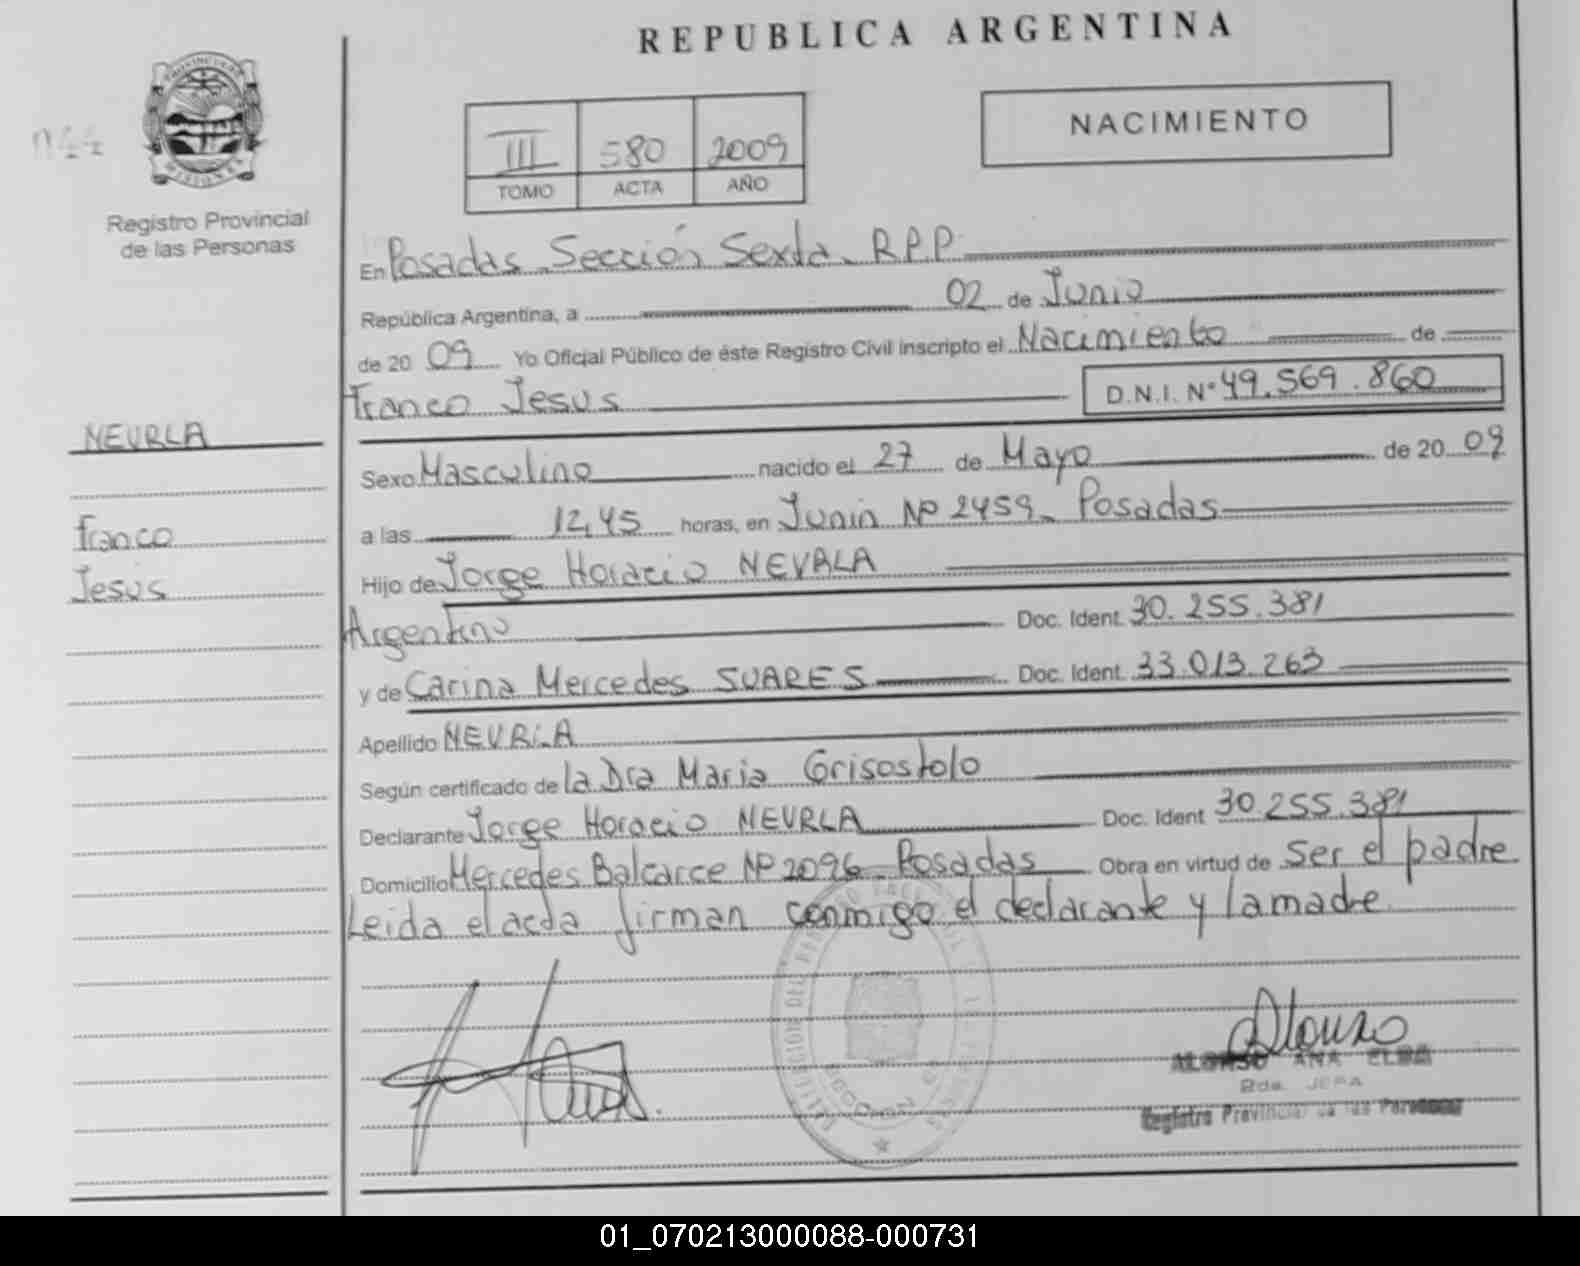 REPUBLICA ARGENTINA
PROVINCIA DE
MISIONES
Registro Provincial
de las Personas
NACIMIENTO
III 580 2009
TOMO ACTA AÑO
En Posadas Sección Sexta R.P.P.
República Argentina, a 02 de Junio
de 20 09 Yo Oficial Público de éste Registro Civil inscripto el Nacimiento de
Franco Jesus D.N.I. Nº 49.569.860
NEVRLA
Franco
Jesús
Sexo Masculino nacido el 27 de Mayo de 20 09
a las 12,45 horas, en Junin Nº 2459 Posadas
Hijo de Jorge Horacio NEVRLA
Argentino Doc. Ident. 30.255.381
y de Carina Mercedes SUARES Doc. Ident. 33.013.263
Apellido NEVRLA
Según certificado de la Dra Maria Grisostolo
Declarante Jorge Horacio NEVRLA Doc. Ident 30.255.381
Domicilio Mercedes Balcarce Nº 2096 Posadas Obra en virtud de ser el padre
Leida el acta firman conmigo el declarante y la madre
Alonso
ALONSO ANA ELBA
Registro Provincial de las Personas
01_070213000088-000731